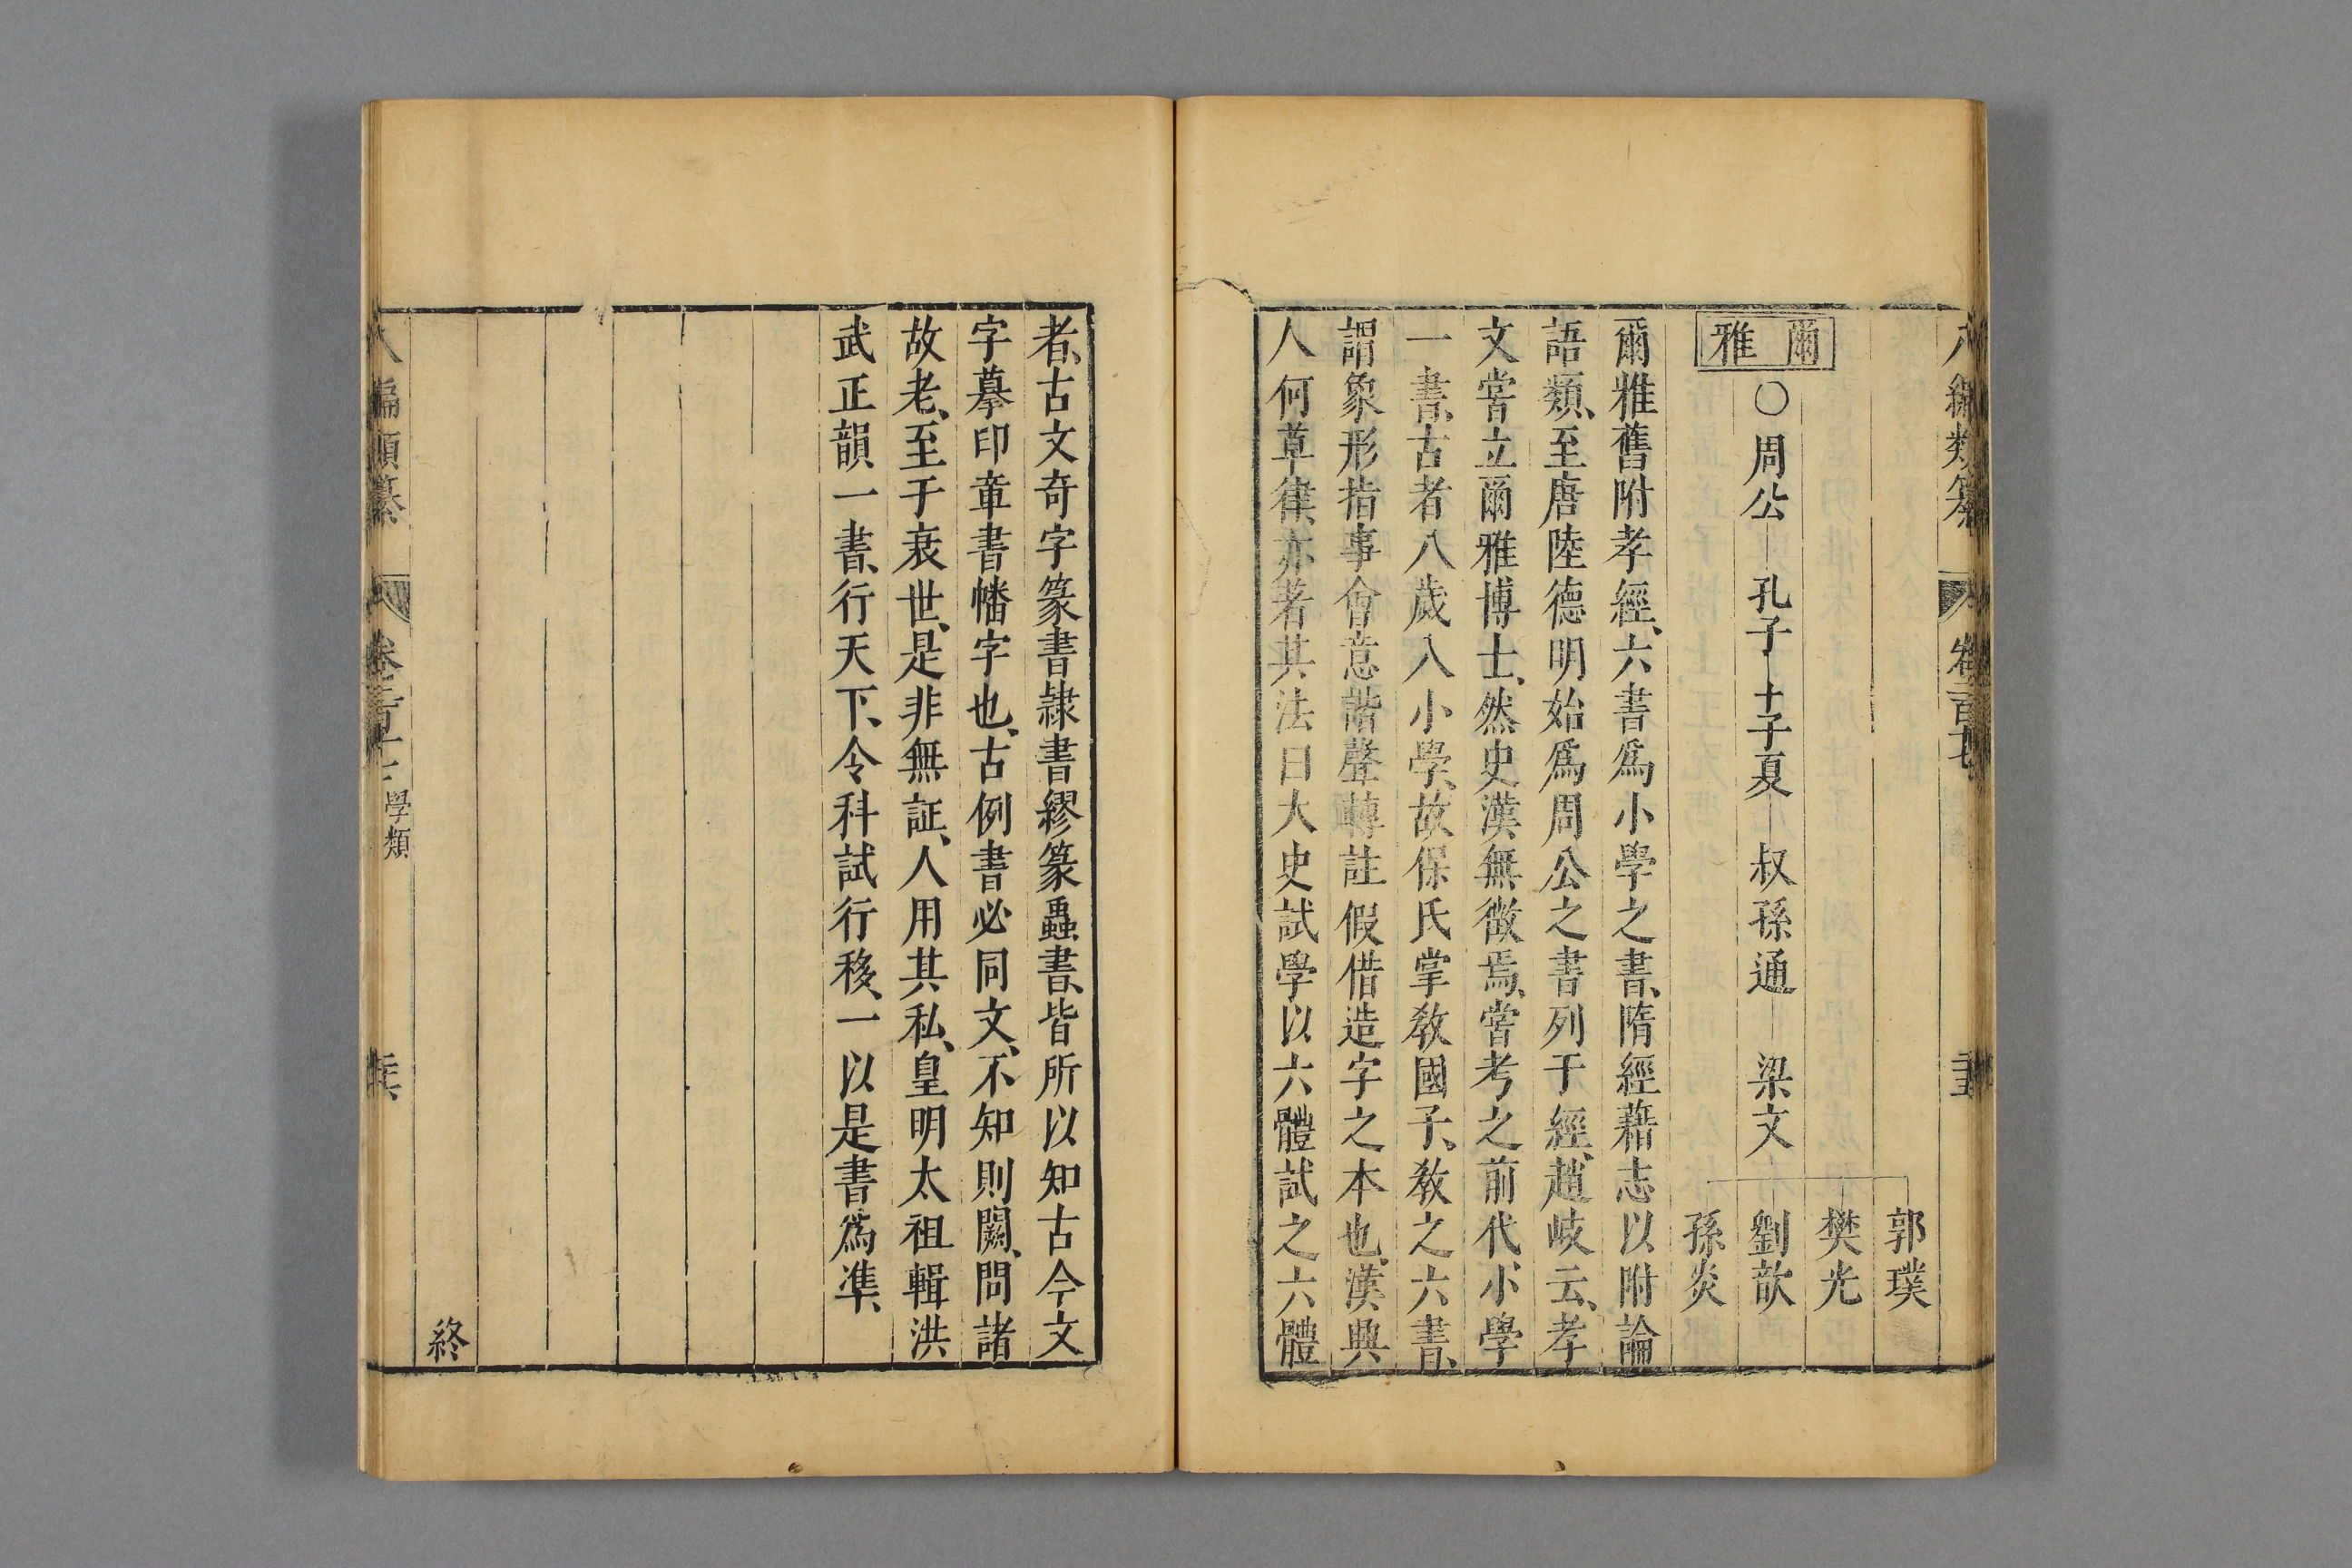 爾雅
郭璞
樊光
○周公 孔子 十子夏 叔孫通 梁文 劉歆
孫炎
爾雅舊附孝經、六書爲小學之書、隋經藉志以附論
語類、至唐陸德明始爲周公之書列于經、趙岐云、孝
文嘗立爾雅博士、然史漢無徴焉、嘗考之前代、小學
一書、古者八歲入小學、故保氏掌敎國子、敎之六書、
謂象形指事會意諧聲轉註假借造字之本也、漢興
人何草律、亦著其法曰大史試學以六體試之六體
者、古文奇字篆書隷書繆篆蟲書、皆所以知古今文
字摹印章書幡字也、古例書必同文、不知則闕、問諸
故老、至于衰世、是非無証、人用其私、皇明太祖輯洪
武正韻一書、行天下、令科試行移、一以是書爲準、
終
編類纂 學類